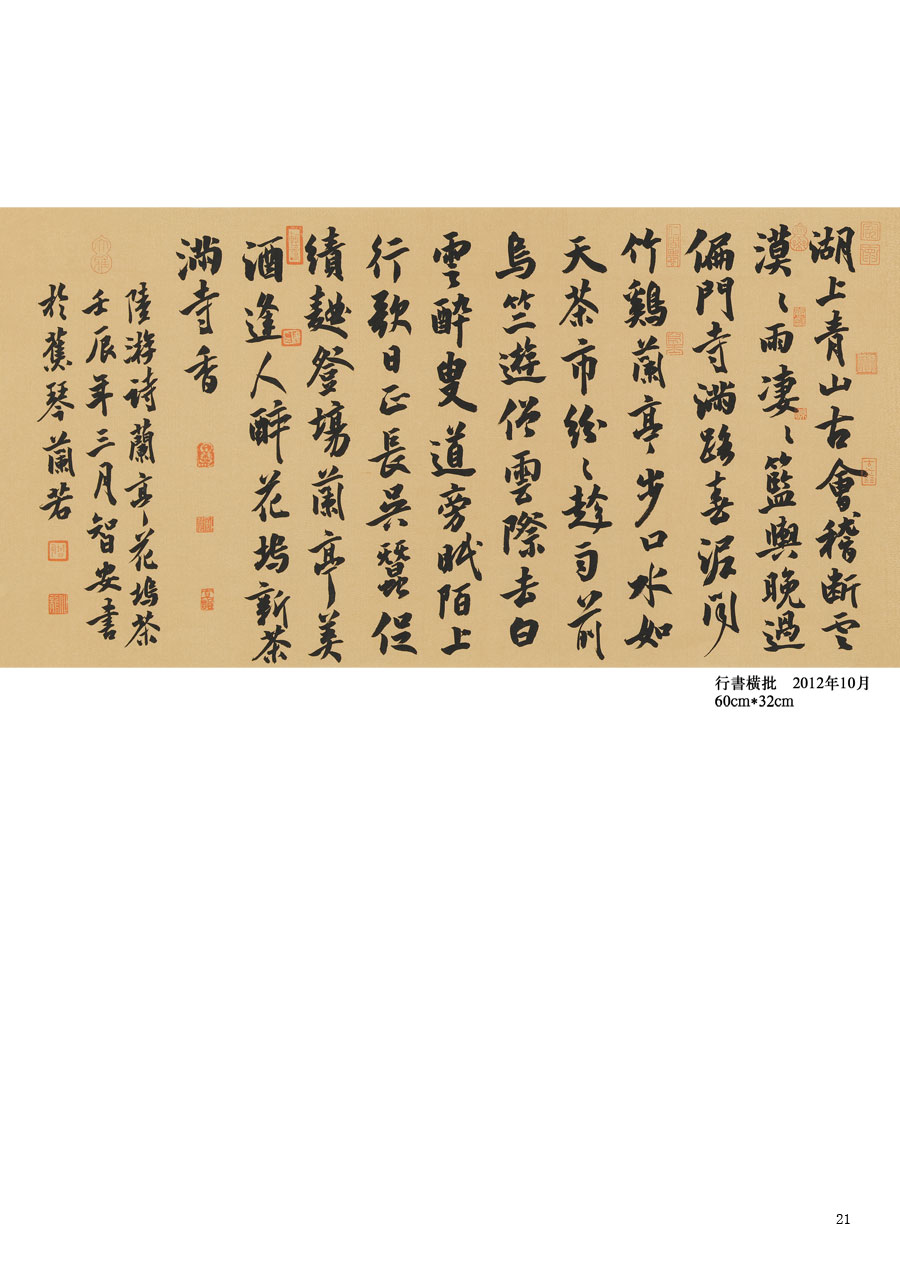 湖上青山古會稽断雲
漠〻雨凄〻籃輿晚過
偏門寺滿路春泥聞
竹鷄蘭亭步口水如
天茶市紛〻趁雨前
烏竺遊僧雲際去白
雲醉叟道旁眠陌上
行歌日正長吳蠶促
績登場蘭亭美
酒逢人醉花塢新茶
滿寺香
陸游詩蘭亭花塢茶
壬辰年三月智安書
於蕉琴蘭若
行書横批　2012年10月
60cm*32cm
21